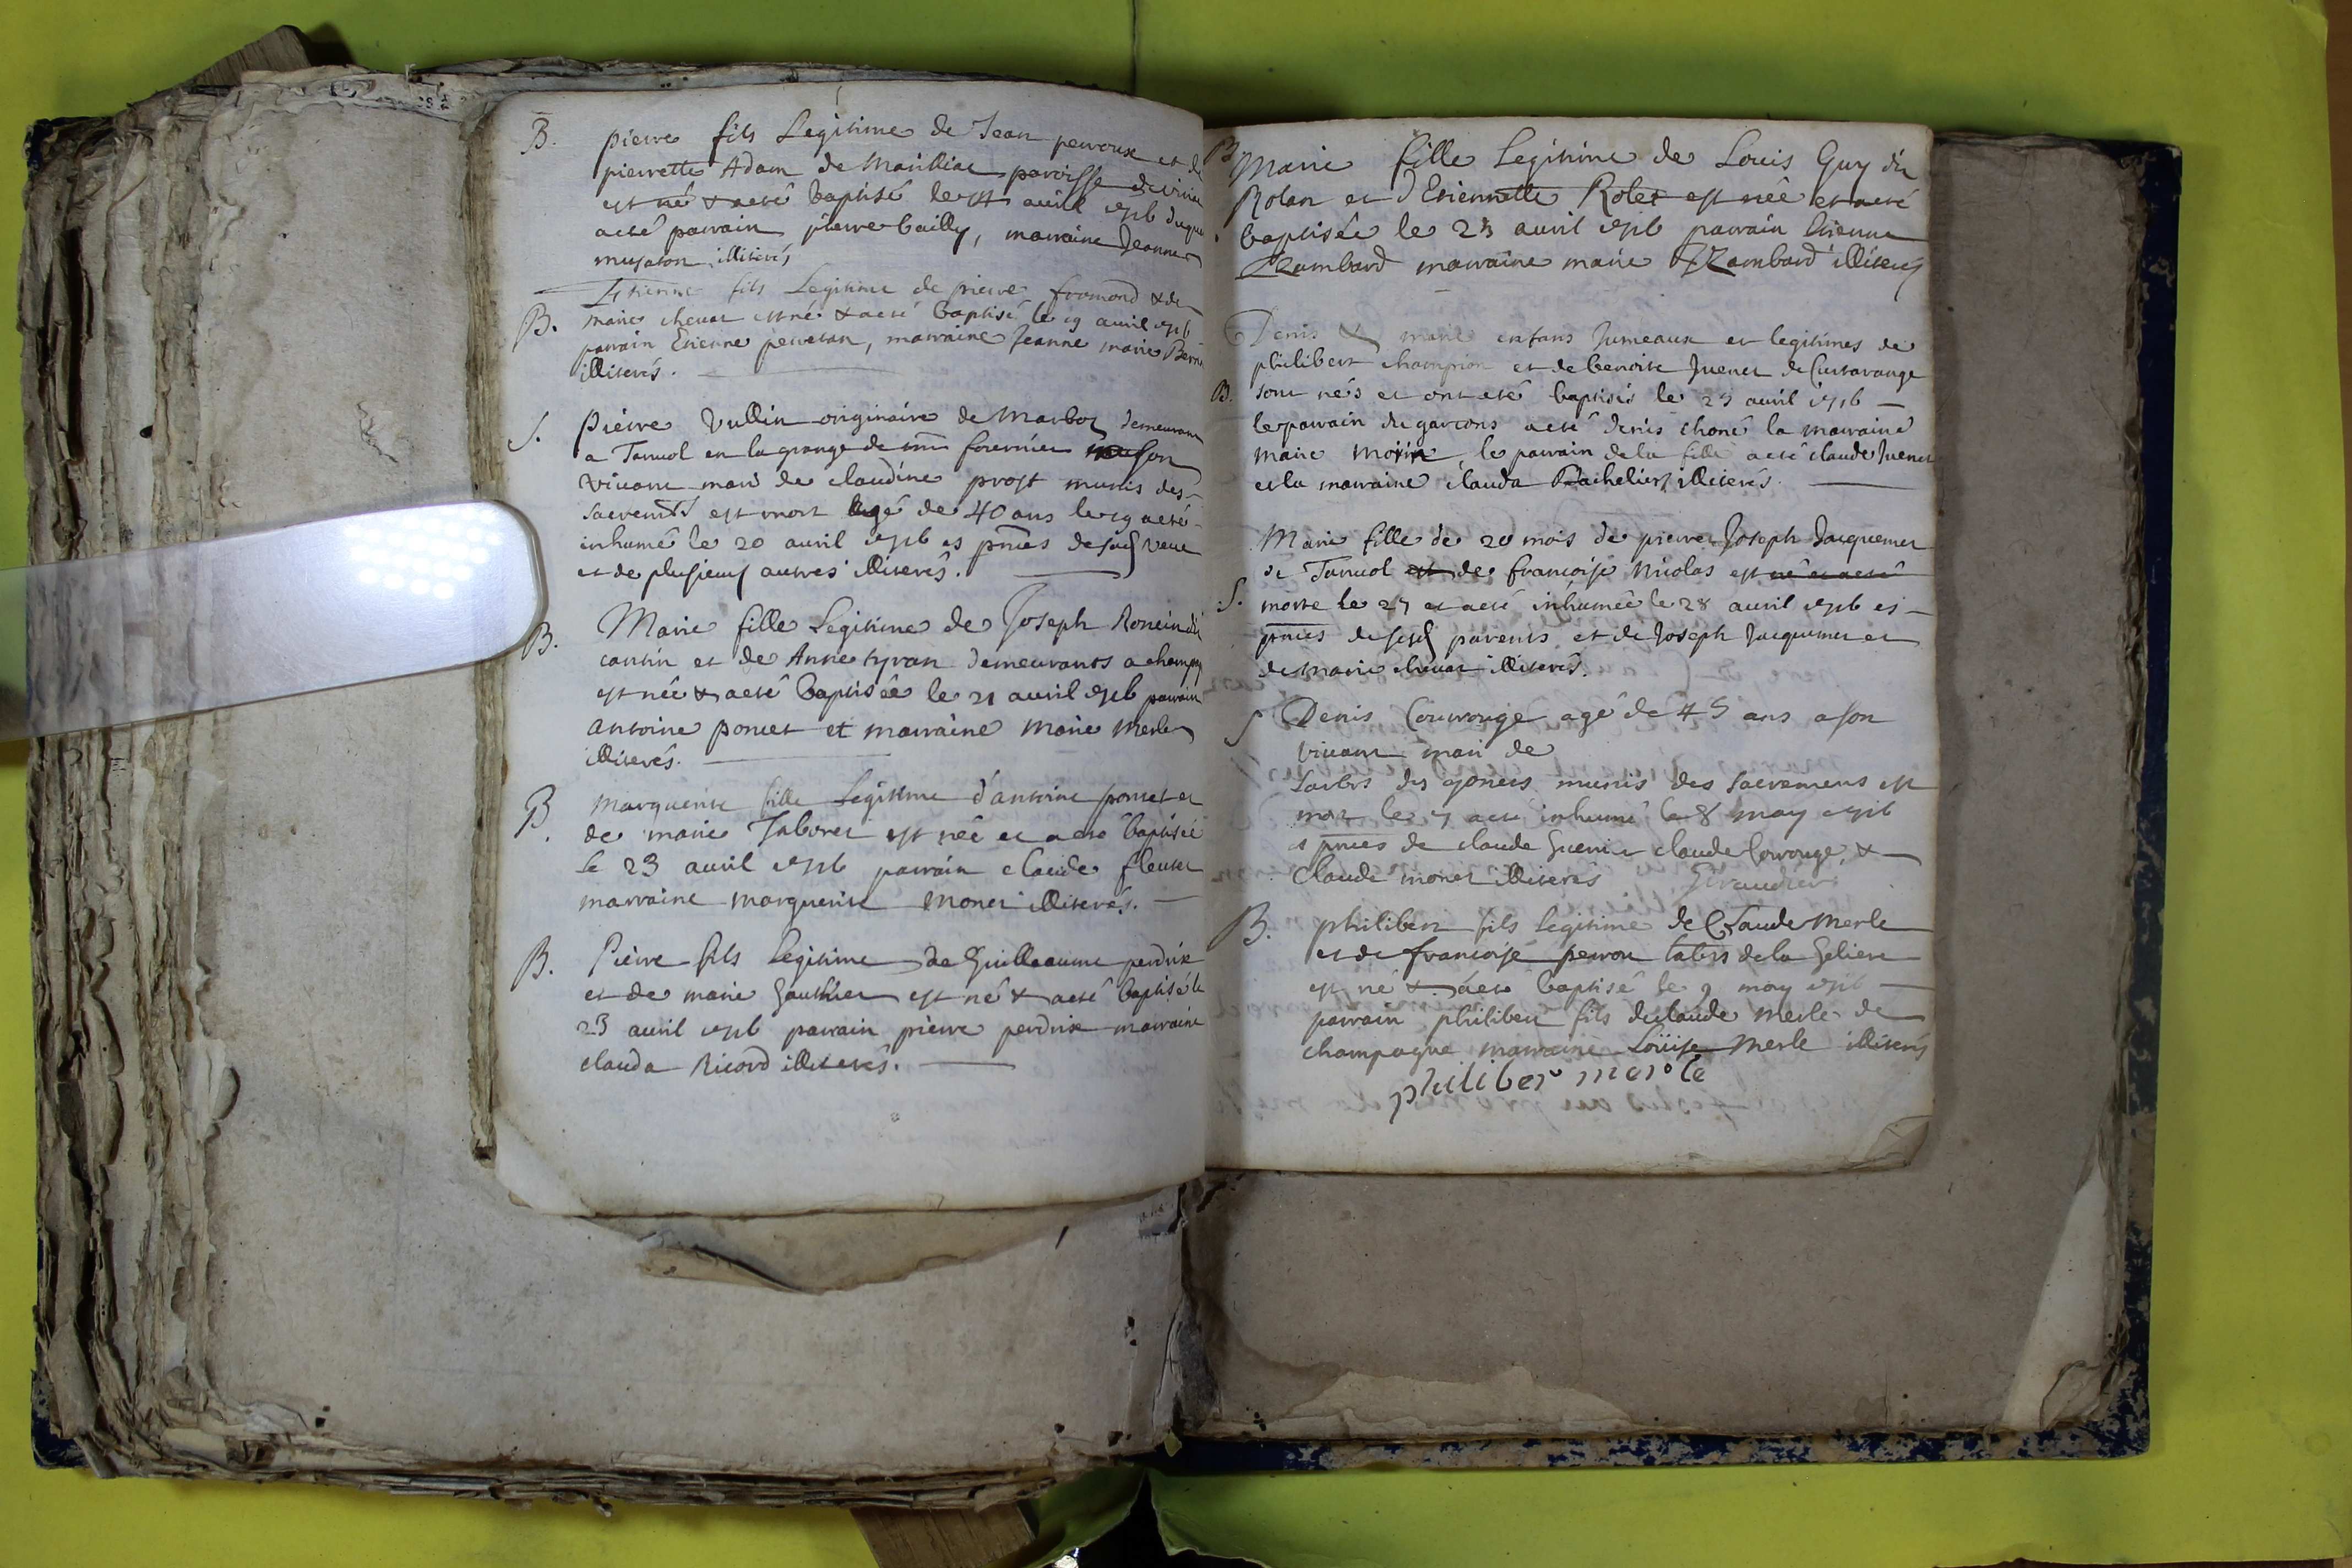 B. pierre fils Legitime de Jean perroux et de
pierrette Adam de Marilliac paroisse
est né & aeté baptisé le avril 1716 duquel
aeté parrain pierre bailly, marraine Jeanne
illiterés
Etienne fils Legitime de pierre fromond & de
B. marie chevat est né & aeté baptisé le 19 avril 1716
parrain Etienne perretan, marraine Jeanne marie
illiterés.
S. Pierre Vullin originaire de Marboz demeurant
a Taruol en la grange de mr fournier a son
vivant mari de claudine prost munis des
sacremts est mort agé de 40 ans le 19 aeté
inhumé le 20 avril 1716 es pnces de sad veue
et de plusieurs autres illiterés.
B. Marie fille Legitime de Joseph Ronein dit
cantin et de Anne tyran demeurants a champ
est née & aeté baptisée le 21 avril 1716 parrain
antoine poncet et marraine marie merle
illiterés.
B. marguerite fille Legitime d'antoine poncet et
de marie Taboret est née et a eté baptisée
le 23 avril 1716 parrain claude fleuret
marraine marguerite monet illiterés.
B. Pierre fils Legitime de Guilleaume perdrix
et de marie Gauthier est né & aeté baptisé le
23 avril 1716 parrain pierre perdrix marraine
clauda Ricord illiterés.
B Marie fille Legitime de Louis Guy dit
Rolan et d'Etiennette Rolet est née et aeté
baptisée le 23 avril 1716 parrain Etienne
marraine marie illiterés
Denis & marie enfans Jumeaux et legitimes de
philibert champion et de benoite Juenet de Curtarauge
B. sont nés et ont eté baptisés le 23 avril 1716
le parrain du garcons aeté denis choné la marraine
marie morin, le parrain de la fille aeté claude Juenet
et la marraine clauda Bachelier, illiterés.
Marie fille de 20 mois de pierre Joseph Jacquemet
de Taruol et de francoise Nicolas est né et aeté
S. morte le 27 et aeté inhumée le 28 avril 1716 es
pnces de sesd parents et de Joseph Jacquemet et
de marie chevat illiterés.
S Denis Courrouge agé de 45 ans a son
vivant mari de
Labrs des gonets munis des sacremens est
mort le 7 aeté inhumé le 8 may 1716
es pnces de claude Guerrier claude Corrouge, &
Claude monet illiterés Giraudier
B. philibert fils legitime de Claude Merle
et de francoise perron labrs de la Geliere
est né & aeté baptisé le 9 may 1716
parrain philibert fils de claude merle de
champagne marraine Loüise merle illiterés
philiber merle